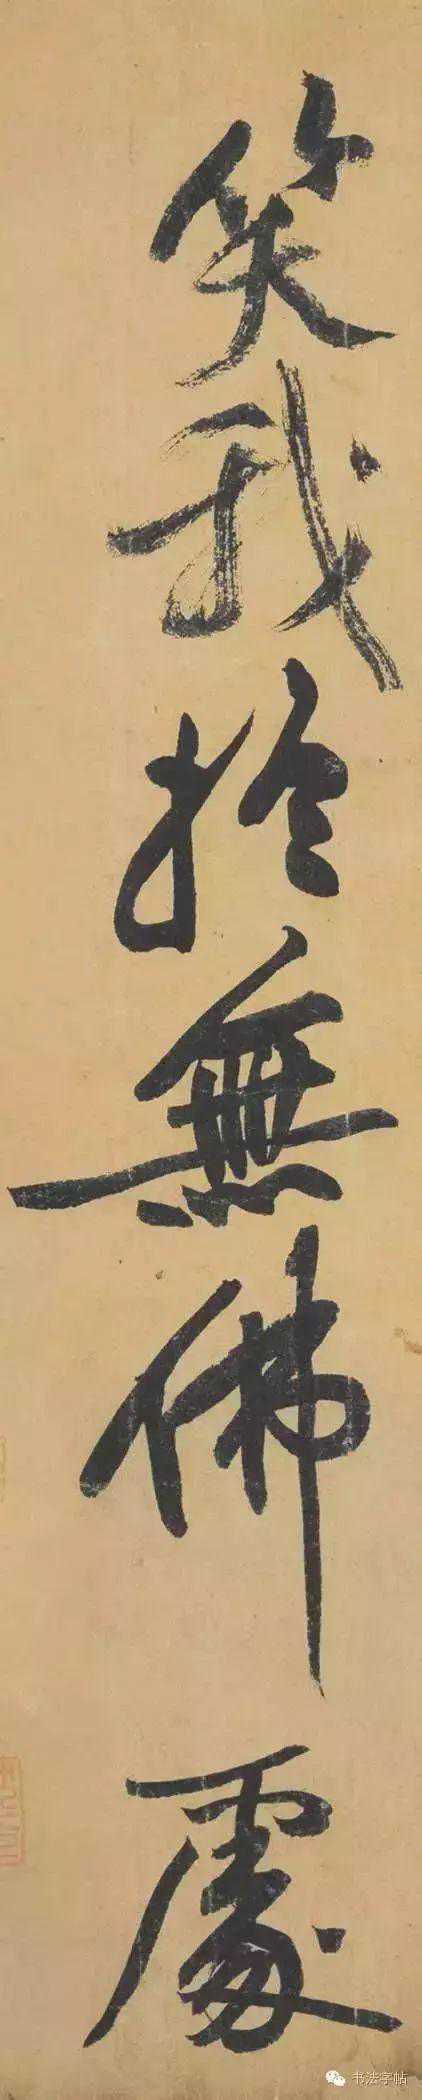 笑我於無佛處
书法字帖